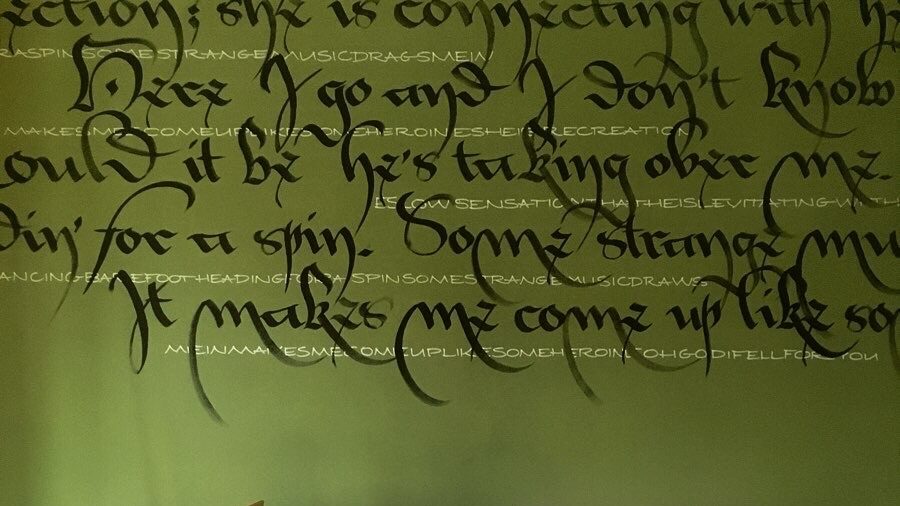 ection; she is connecting with he
RASPINSOMESTRANGEMUSICDRAGSMEIN
Here I go and I don't know
MAKESMECOMEUPLIKESOMEHEROINESHEISRECREATION
ould it be he's taking ober me.
ESLOWSENSATIONTHATHEISLEVITATINGWITHS
din' for a spin. Some strange mu
ANCINGBAREFOOTHEADINGFORASPINSOMESTRANGEMUSICDRAWS
It makes me come up like so
MEINMAKESMECOMEUPLIKESOMEHEROINEOHGODIFELLFORYOU